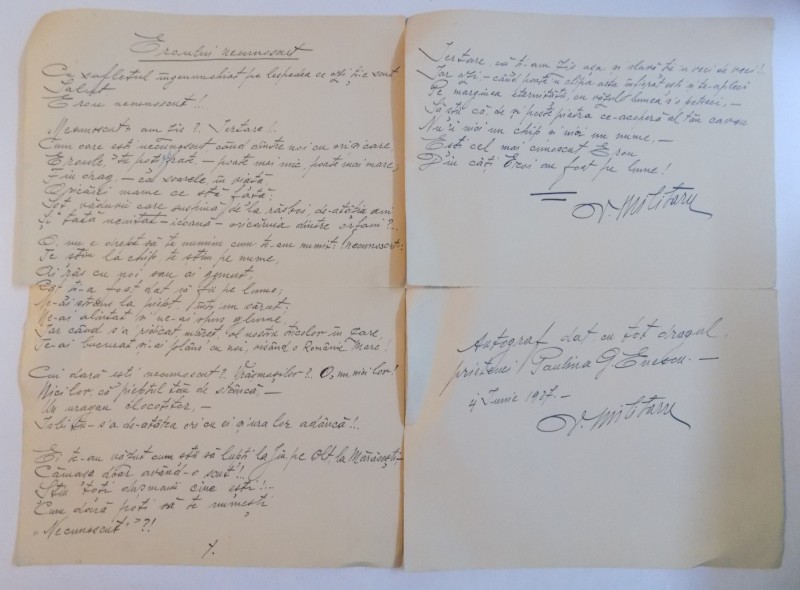 Eroului necunoscut
Cu sufletul îngenunchiat pe lespedea ce azi ți-e scut
Salut
Erou necunoscut!..
Necunoscut am zis?. Iertare!.
Cum care ești necunoscut când dintre noi cu orișicare
Eroule te poți - poate mai mic, poate mai mare,
Fiu drag, - cât soarele în viață
Oricărei mame ce stă
Soț văduvii care suspină, de la răsboi, de-atâția ani
Și tată neuitat - icoană - oricăruia dintre orfani?..
O, nu e drept să te numim cum te-am numit: necunoscut:
Te știm la chip, te știm pe nume,
Ai râs cu noi sau ai gemut
Cât ți-a fost dat să fii pe lume;
Ne-ai strâns la piept într'un sărut;
Ne-ai alintat și ne-ai spus glume
Iar când s'a ridicat măreț, al nostru tricolor în Țare,
Te-ai bucurat și-ai plâns cu noi, visând o Românie Mare!
Cui dară ești necunoscut?. Vrăjmașilor?. O, nu nici lor!
Nici lor, că pieptul tău de stâncă, -
Un uragan clocotitor, -
Izbitu-s'a de-atâtea ori cu ei și'n ura lor adâncă!..
Ei te-au văzut cum știi să lupți la Jiu pe Olt, la Mărășești -
Cămașa doar având-o scut!..
Știu toți dușmanii cine ești!..
Cum dară poți să te numești
„Necunoscut"?!
Iertare, că ți-am zis așa, și slavă ție'n veci de veci!
Iar azi - când poate'n clipa asta
Pe marginea eternității, cu văzul lumea s'o petreci, -
Să știi că, deși poate piatra ce-acoperă al tău cavou
Nu-i nici un chip și nici un nume, -
Ești cel mai cunoscut Erou
Din câți Eroi au fost pe lume!
V. Militaru
Autograf dat cu tot dragul,
prietenei Paulina G Enescu. -
4 Iunie 1937. -
V. Militaru